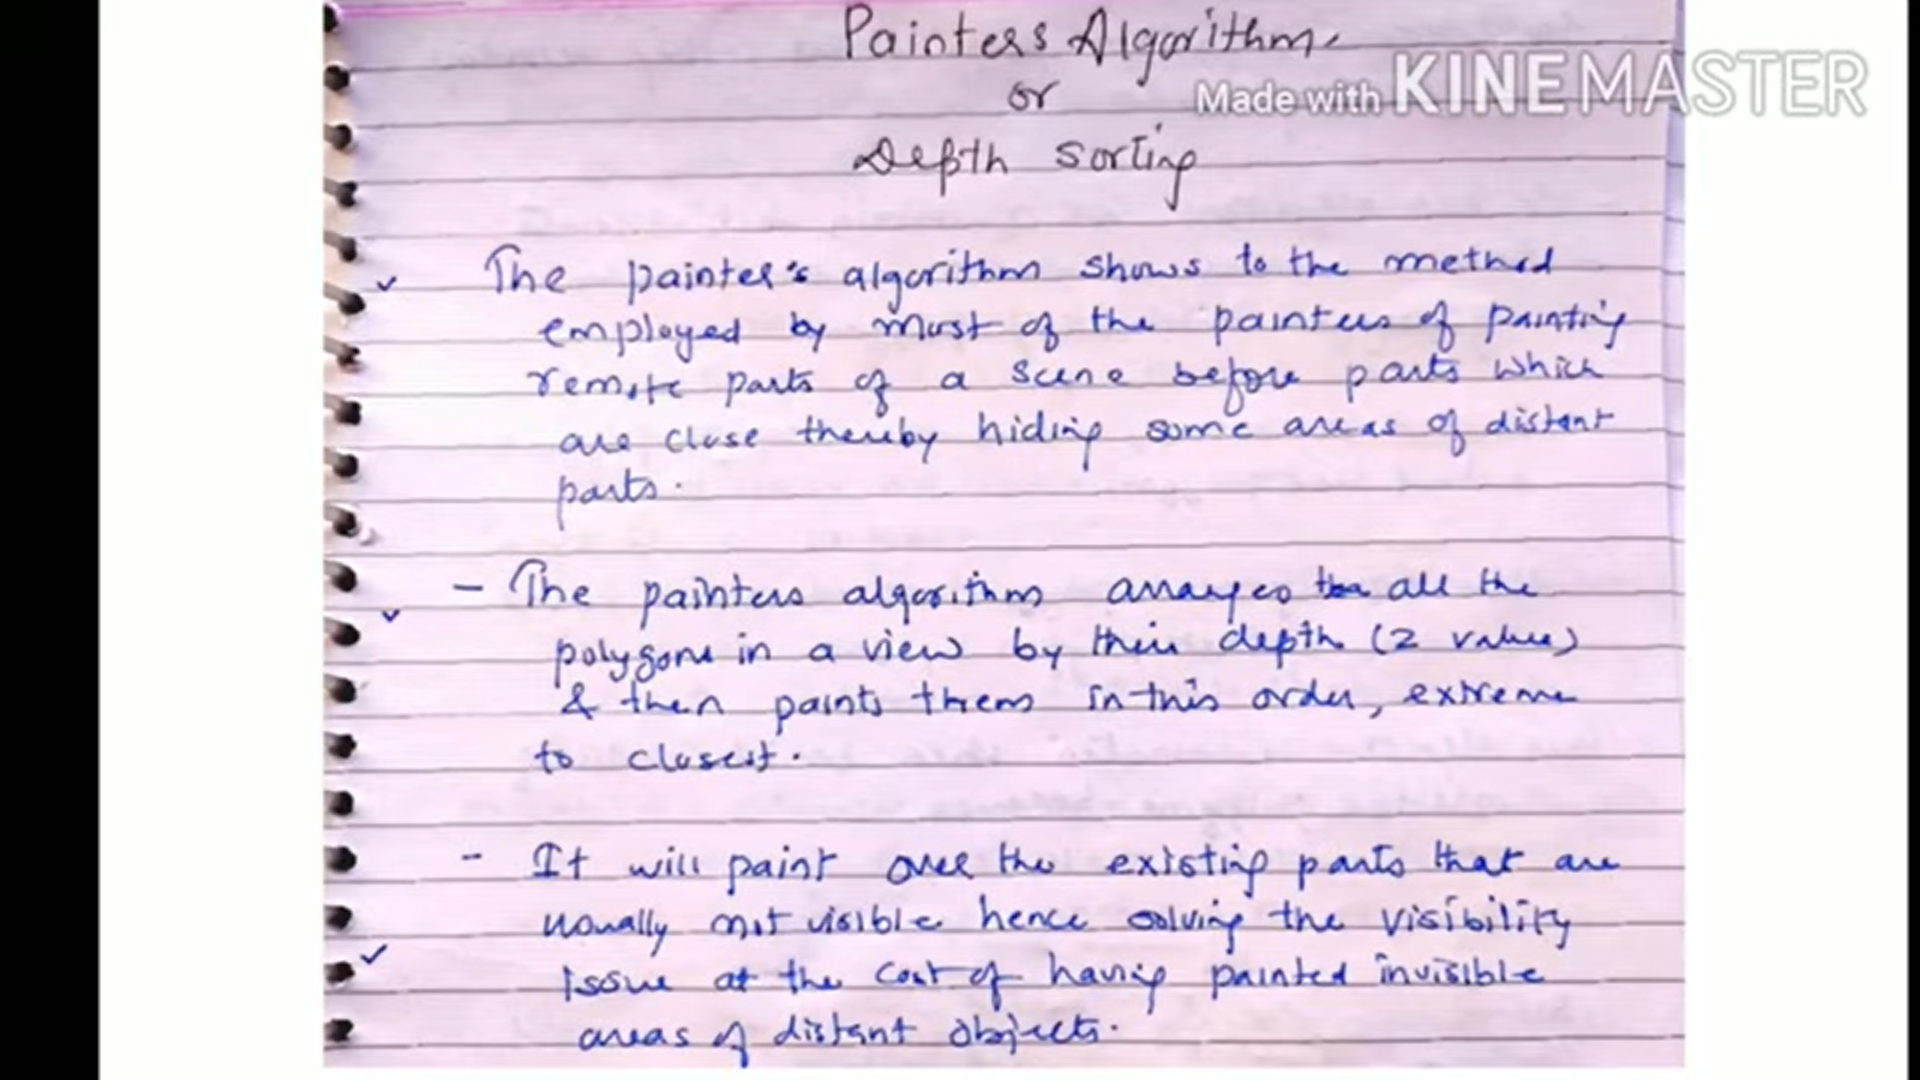 Painters Algorithm
or
Made with KINEMASTER
Depth Sorting
The painter's algorithm shows to the method
employed by most of the painters of painting
remote parts of a scene before parts which
are close thereby hiding some areas of distant
parts.
- The painters algorithm arranges all the
polygons in a view by their depth (z value)
& then paints them in this order, extreme
to closest.
- It will paint over the existing parts that are
usually not visible hence solving the visibility
issue at the cost of having painted invisible
areas of distant objects.